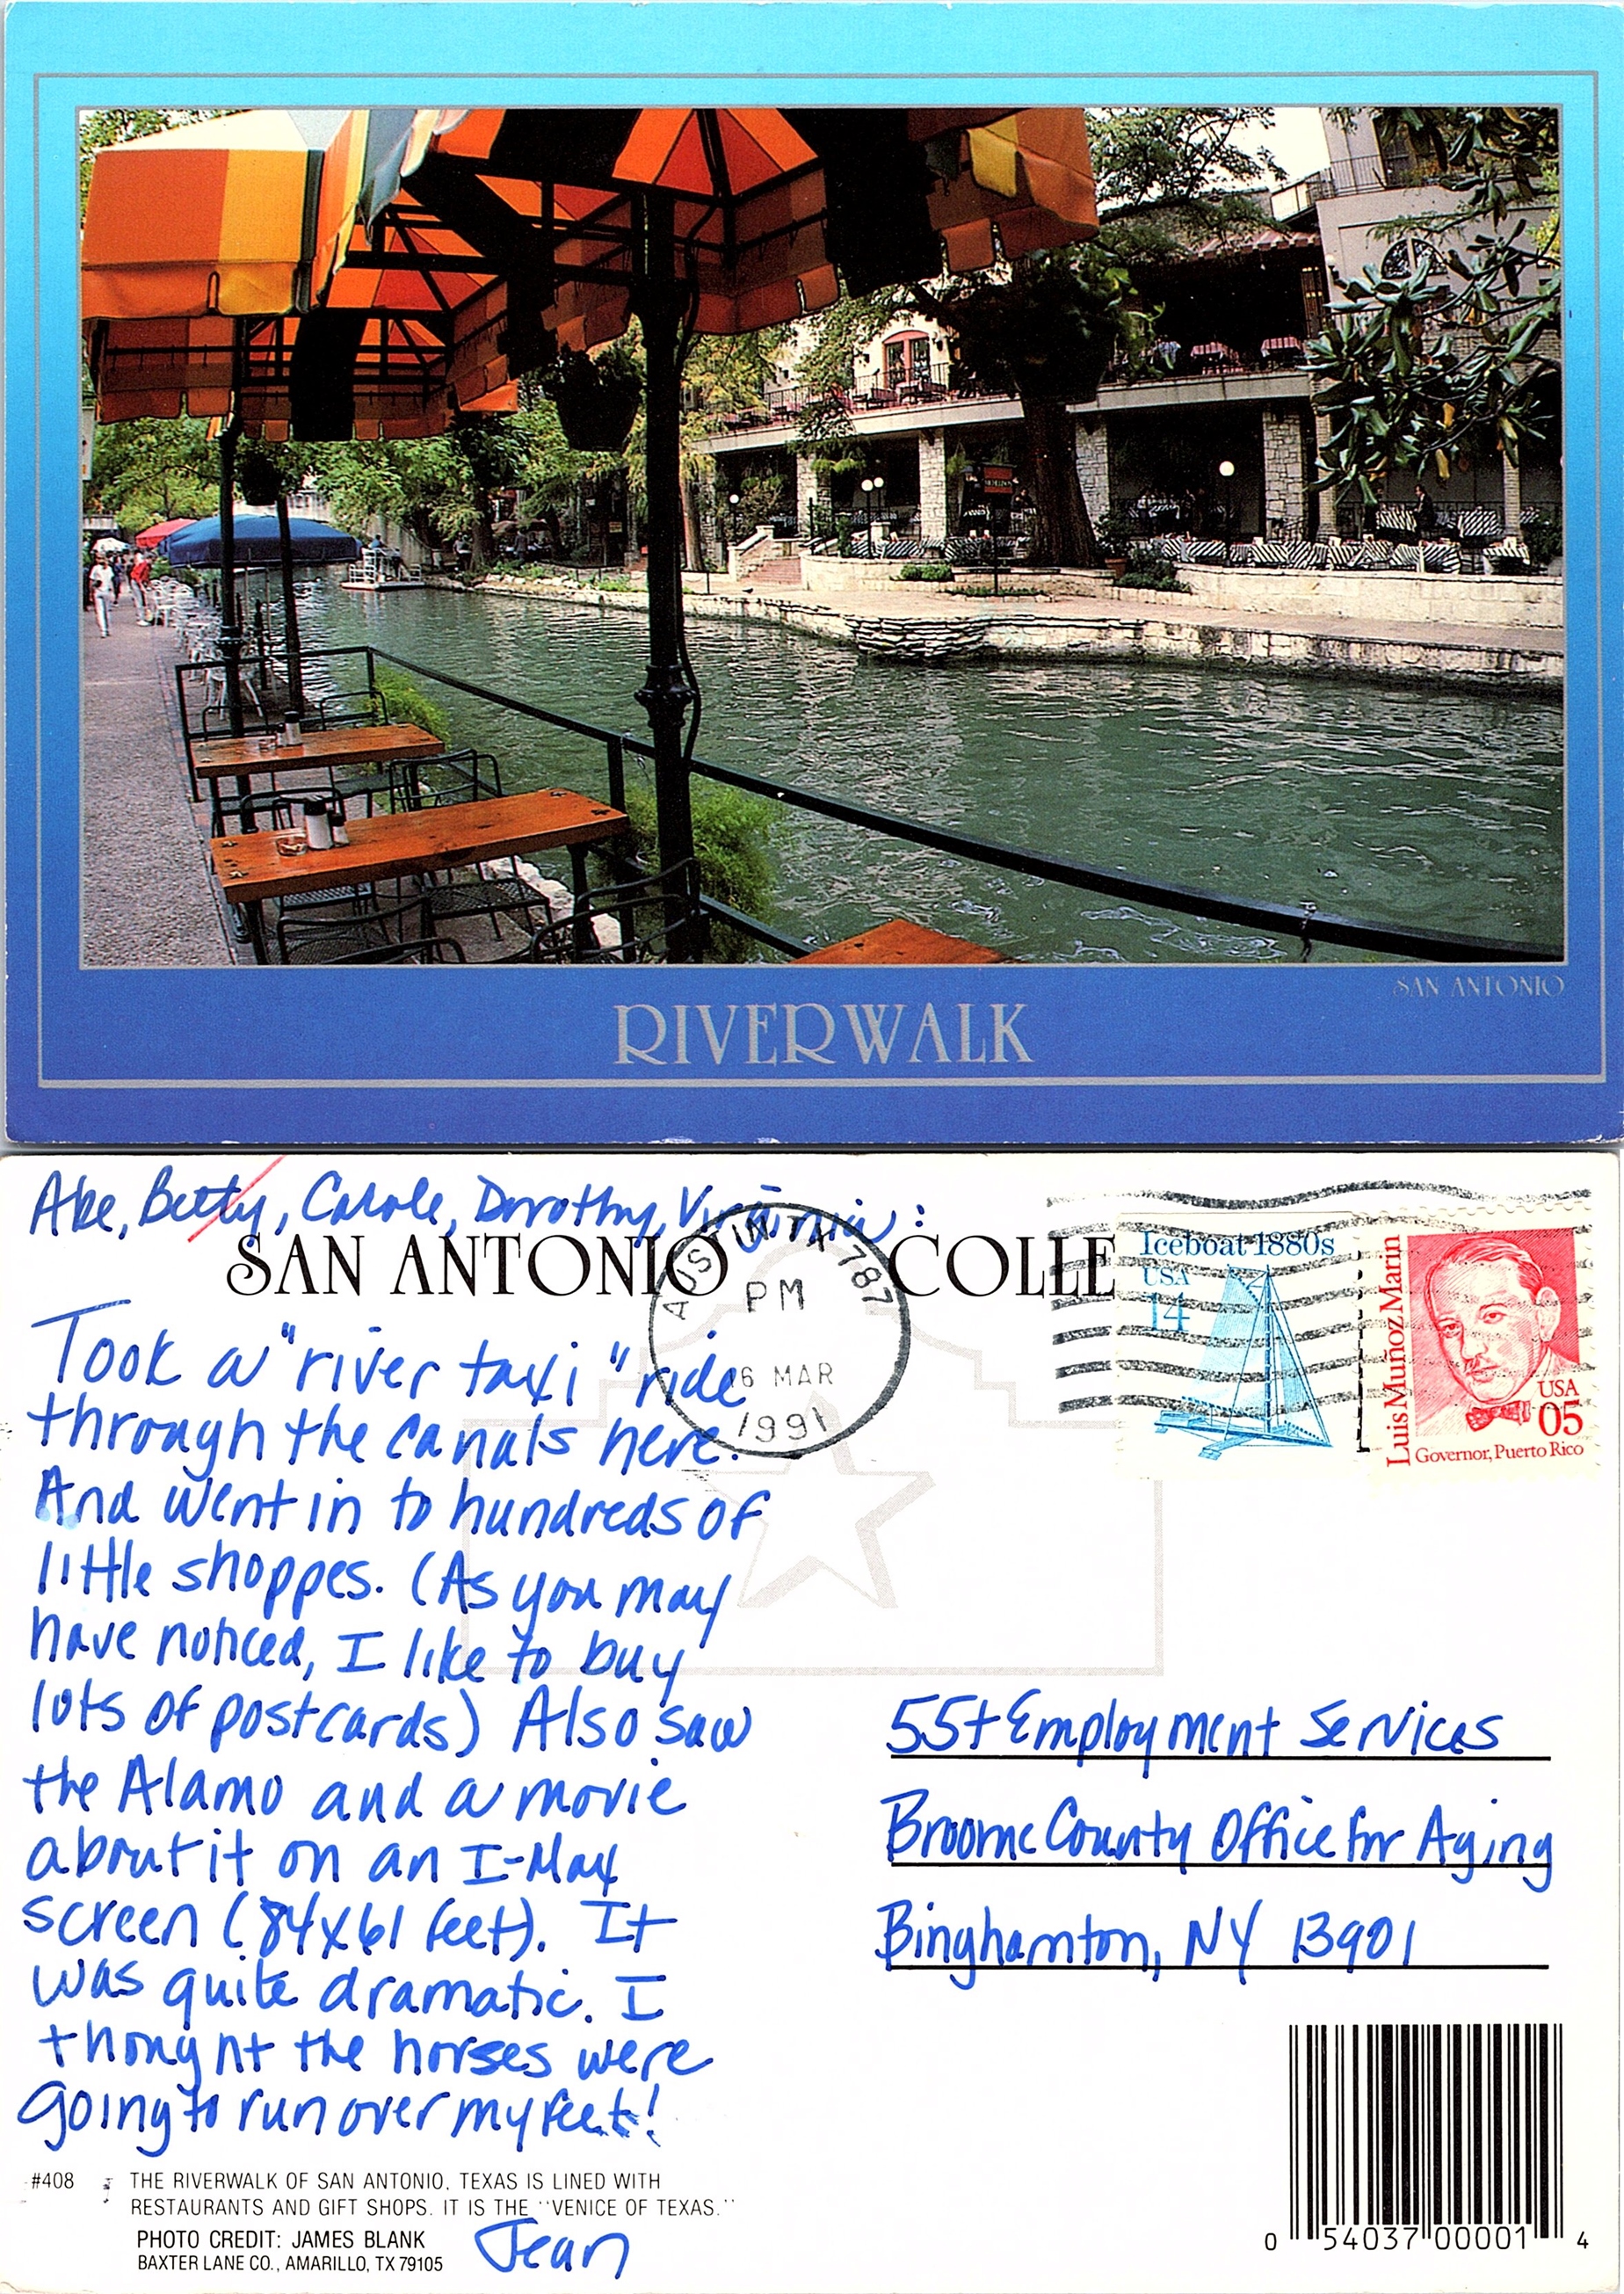 SAN ANTONIO
RIVERWALK
Abe, Betty, Carole, Dorothy, Virginia:
SAN ANTONIO COLLE
AUSTIN, TX 787
PM
6 MAR
1991
Iceboat 1880s
USA
14
Luis Muñoz Marin
USA
05
Governor, Puerto Rico
Took a "river taxi" ride
through the canals here.
And went in to hundreds of
little shoppes. (As you may
have noticed, I like to buy
lots of postcards) Also saw
the Alamo and a movie
about it on an I-Max
screen (84x61 feet). It
was quite dramatic. I
thought the horses were
going to run over my feet!
Jean
55+ Employment Services
Broome County Office for Aging
Binghamton, NY 13901
#408
THE RIVERWALK OF SAN ANTONIO, TEXAS IS LINED WITH
RESTAURANTS AND GIFT SHOPS. IT IS THE "VENICE OF TEXAS."
PHOTO CREDIT: JAMES BLANK
BAXTER LANE CO., AMARILLO, TX 79105
0 54037 00001 4